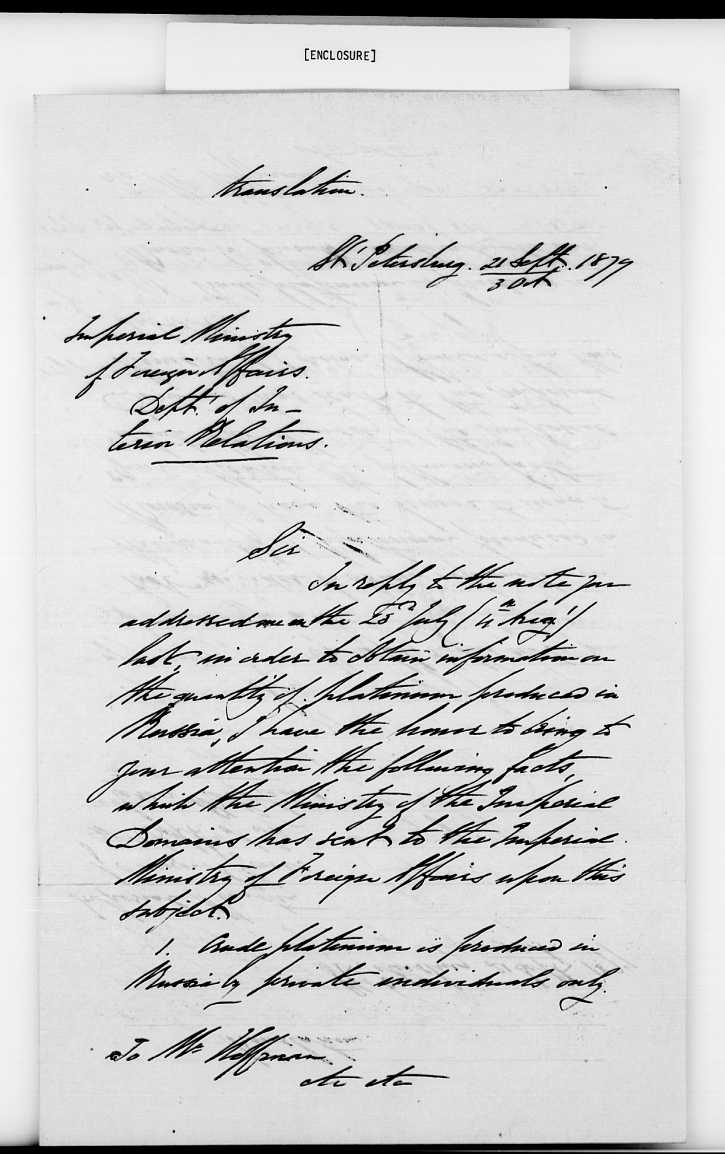 [ENCLOSURE]
Translation.
St Petersburg. 21 Sept. 1879
3 Oct
Imperial Ministry
of Foreign Affairs.
Dept. of In-
terior Relations.
Sir
In reply to the note you
addressed me on the 23rd July (4th Aug)
last, in order to obtain information on
the quantity of platinum produced in
Russia, I have the honor to bring to
your attention the following facts,
which the Ministry of the Imperial
Domains has sent to the Imperial
Ministry of Foreign Affairs upon this
subject
1. Crude platinum is produced in
Russia by private individuals only.
To Mr Hoffman
etc etc